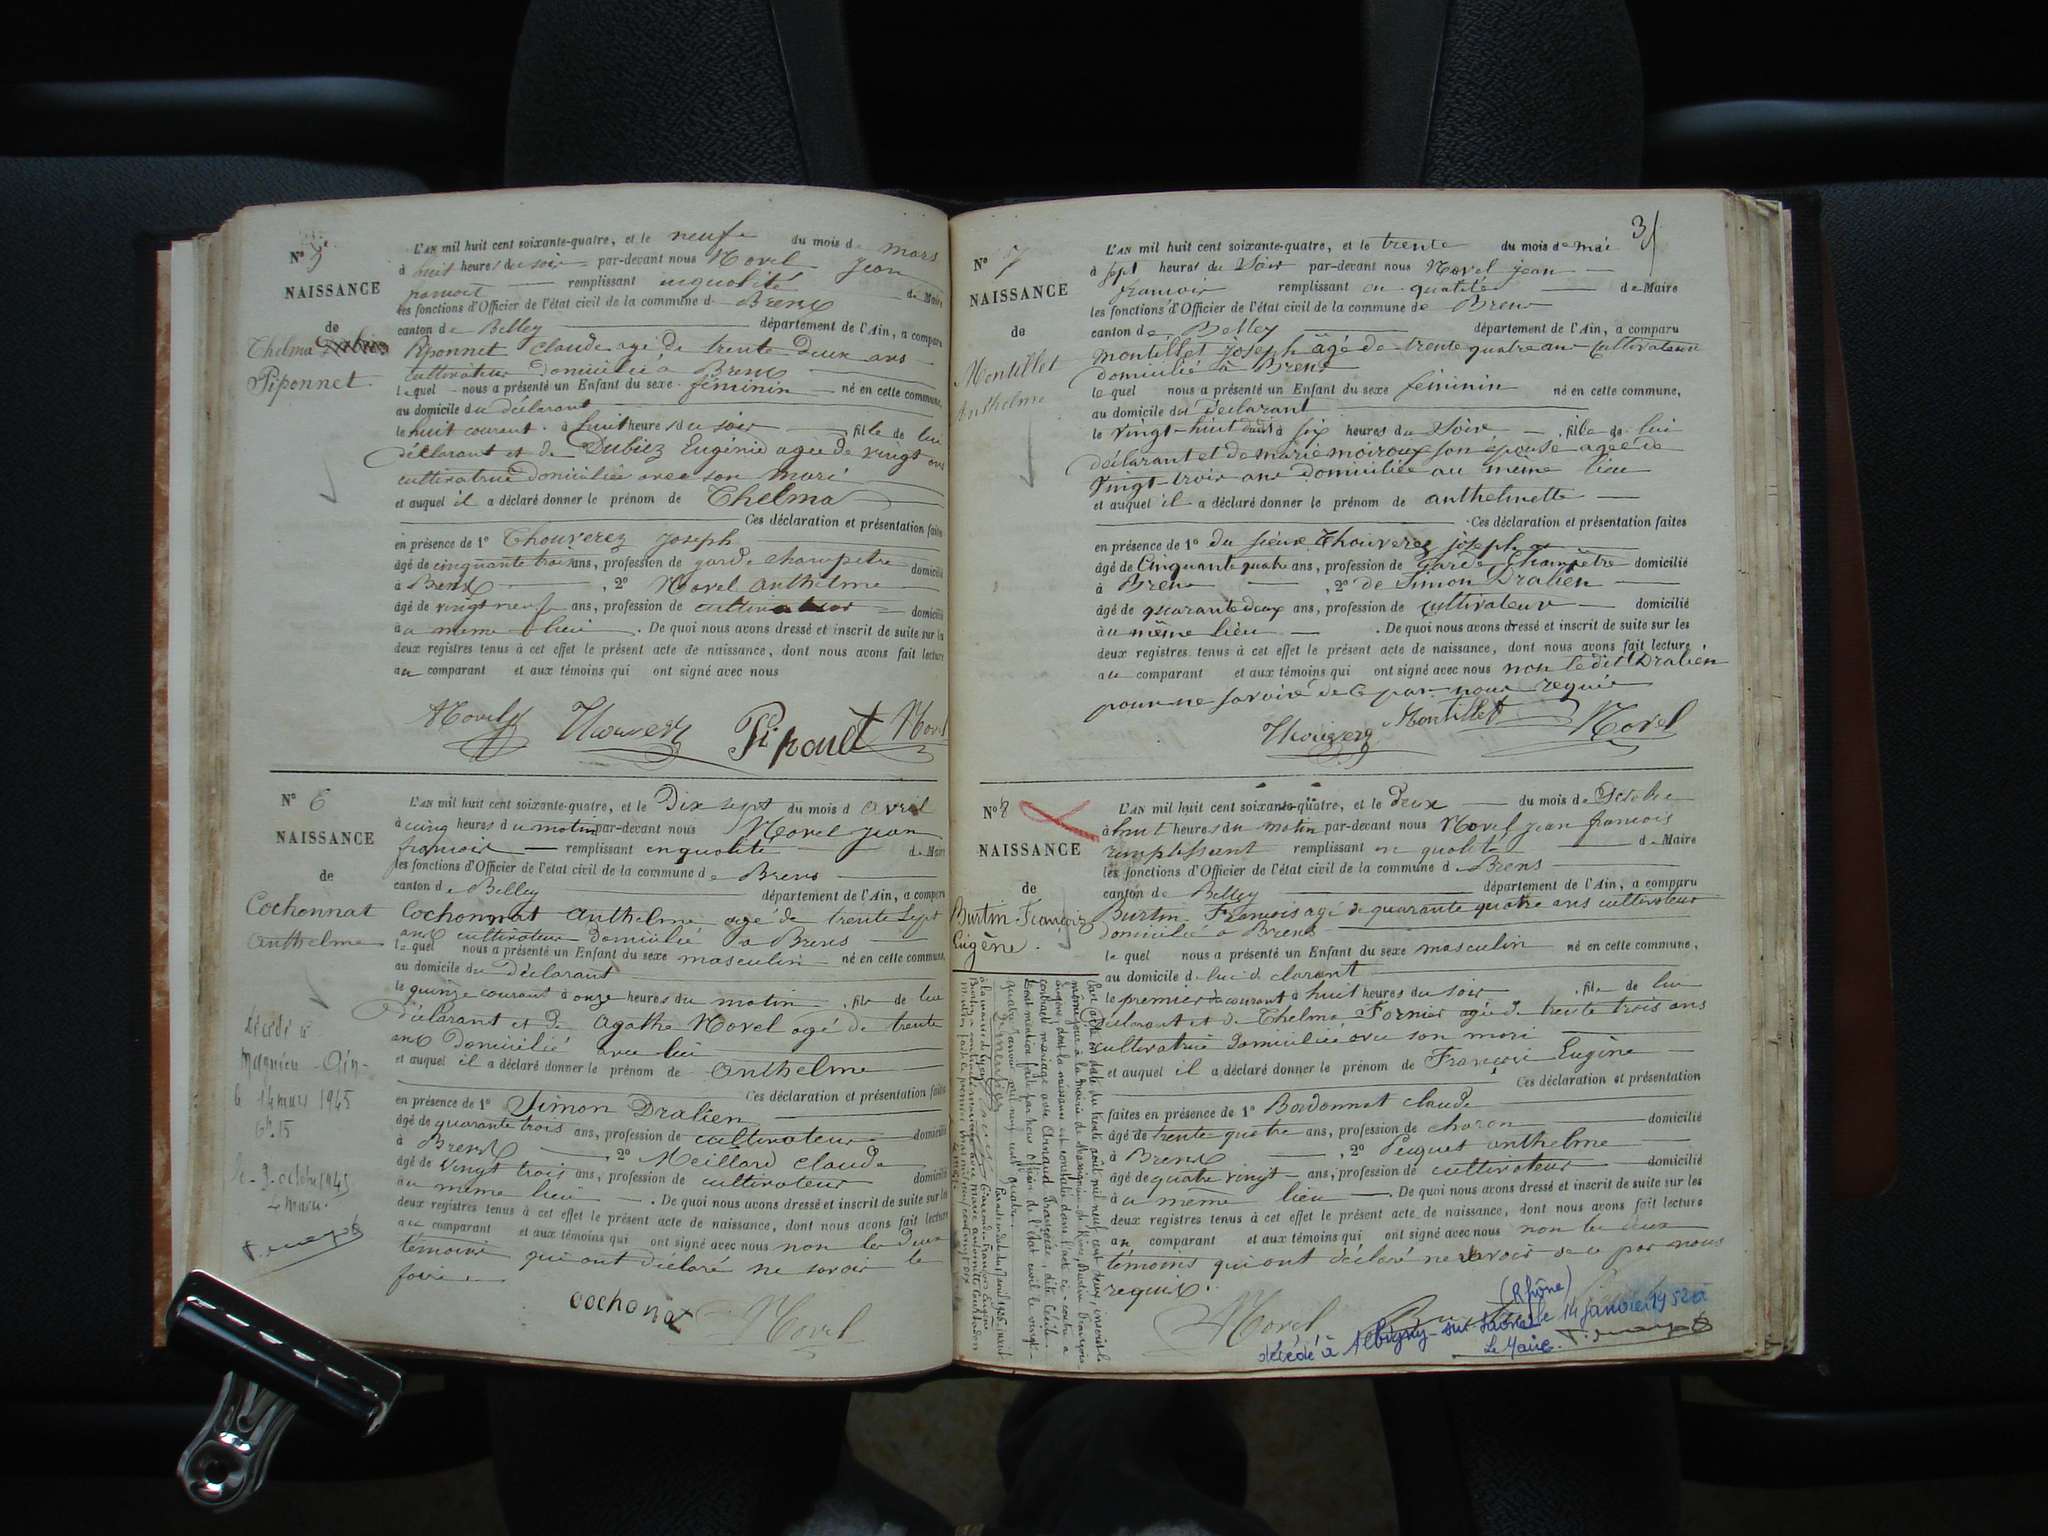 N° 5
NAISSANCE
de
Thelma
Piponnet
L'AN mil huit cent soixante-quatre, et le neufe du mois de mars
à huit heures du soir par-devant nous Morel Jean
francois remplissant en qualité de Maire
les fonctions d'Officier de l'état civil de la commune de Brens
canton de Belley département de l'Ain, a comparu
Piponnet Claude agé de trente deux ans
cultivateur domicilié à Brens
lequel nous a présenté un Enfant du sexe féminin né en cette commune,
au domicile du déclarant
le huit courant à huit heures du soir fille de lui
déclarant et de Dubiez Eugénie agée de vingt ans
cultivatrice domiciliée avec son mari
et auquel il a déclaré donner le prénom de Thelma
Ces déclaration et présentation faites
en présence de 1° Thouverez joseph
âgé de cinquante trois ans, profession de garde champêtre domicilié
à Brens , 2° Morel anthelme
âgé de vingt neufe ans, profession de cultivateur domicilié
au même lieu . De quoi nous avons dressé et inscrit de suite sur les
deux registres tenus à cet effet le présent acte de naissance, dont nous avons fait lecture
au comparant et aux témoins qui ont signé avec nous
Morel Thouverez Piponet Morel
N° 6
NAISSANCE
de
Cochonnat
Anthelme
Décédé à
Magnieu - Ain -
le 14 mars 1945
6h 15
le 9 octobre 1945
Le Maire.
L'AN mil huit cent soixante-quatre, et le Dix sept du mois d avril
à cinq heures du matin par-devant nous Morel Jean
françois remplissant en qualité de Maire
les fonctions d'Officier de l'état civil de la commune de Brens
canton de Belley département de l'Ain, a comparu
Cochonnat anthelme agé de trente sept
ans cultivateur domicilié a Brens
lequel nous a présenté un Enfant du sexe masculin né en cette commune,
au domicile du Déclarant
le quinze courant à onze heures du matin , fils de lui
déclarant et de Agathe Morel agé de trente
ans Domicilié avec lui
et auquel il a déclaré donner le prénom de Anthelme
Ces déclaration et présentation faites
en présence de 1° Simon Dralien
âgé de quarante trois ans, profession de cultivateur domicilié
à Brens 2° Meillard Claude
âgé de vingt trois ans, profession de cultivateur domicilié
au même lieu . De quoi nous avons dressé et inscrit de suite sur les
deux registres tenus à cet effet le présent acte de naissance, dont nous avons fait lecture
au comparant et aux témoins qui ont signé avec nous non les deux
témoins qui ont déclaré ne savoir le
faire.
cochonat Morel
3
N° 7
NAISSANCE
de
Montillet
Anthelme
L'AN mil huit cent soixante-quatre, et le trente du mois de mai
à sept heures du Soir par-devant nous Morel jean
francois remplissant en qualité de Maire
les fonctions d'Officier de l'état civil de la commune de Brens
canton de Belley département de l'Ain, a comparu
montillet joseph âgé de trente quatre ans cultivateur
domicilié à Brens
lequel nous a présenté un Enfant du sexe féminin né en cette commune,
au domicile du déclarant
le vingt-huit à six heures du Soir , fille de lui
déclarant et de marie moiroux son épouse agée de
vingt-trois ans domiciliée au même lieu
et auquel il a déclaré donner le prénom de anthelmette
Ces déclaration et présentation faites
en présence de 1° du sieur Thouverez joseph
âgé de cinquante quatre ans, profession de garde champêtre domicilié
à Brens , 2° de Simon Dralien
âgé de quarante deux ans, profession de cultivateur domicilié
au même lieu . De quoi nous avons dressé et inscrit de suite sur les
deux registres tenus à cet effet le présent acte de naissance, dont nous avons fait lecture
au comparant et aux témoins qui ont signé avec nous non le dit Dralien
pour ne savoir de ce par nous requis
Thouverez Montillet Morel
N° 8
NAISSANCE
de
Burtin François
Eugène.
L'AN mil huit cent soixante-quatre, et le Deux du mois de Octobre
à huit heures du matin par-devant nous Morel jean francois
remplissant remplissant en qualité de Maire
les fonctions d'Officier de l'état civil de la commune de Brens
canton de Belley département de l'Ain, a comparu
Burtin François agé de quarante quatre ans cultivateur
domicilié a Brens
lequel nous a présenté un Enfant du sexe masculin né en cette commune,
au domicile d
le premier du courant à huit heures du soir , fils de lui
déclarant et de Thelma Fornier agée de trente trois ans
cultivatrice domiciliée avec son mari
et auquel il a déclaré donner le prénom de François Eugène
Ces déclaration et présentation
faites en présence de 1° Bordonnat claude domicilié
âgé de trente quatre ans, profession de charon
à Brens , 2° Puguet anthelme
âgé de quatre vingt ans, profession de cultivateur domicilié
au même lieu . De quoi nous avons dressé et inscrit de suite sur les
deux registres tenus à cet effet le présent acte de naissance, dont nous avons fait lecture
au comparant et aux témoins qui ont signé avec nous non les deux
témoins qui ont déclaré ne savoir de ce par nous
requis.
Morel
(Rhône)
décédé à Albigny-sur Saône le 14 janvier 1952
Le Maire.
Par acte en date du trente août mil neuf cent deux, inscrit le
même jour à la mairie de
Eugène, dont la naissance est constatée dans l'acte ci-contre a
contracté mariage avec Arnaud Françoise, dite Cécile
Dont mention faite par nous officier de l'état civil le vingt-
quatre Janvier mil neuf cent quatre.